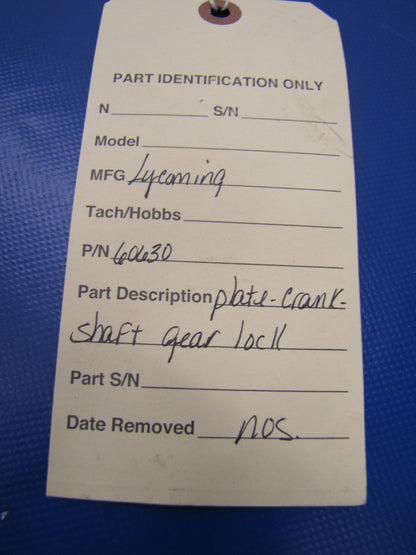 PART IDENTIFICATION ONLY
N S/N
Model
MFG Lycoming
Tach/Hobbs
P/N 60630
Part Description plate-crank-
shaft gear lock
Part S/N
Date Removed nos.